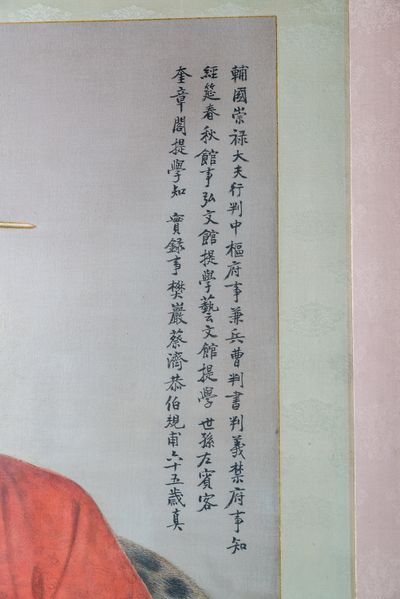 輔國崇禄大夫行判中樞府事兼兵曹判書判義禁府事知
經筵春秋館事弘文館提學藝文館提學 世孫左賓客
奎章閣提學知 實錄事樊巖蔡濟恭伯規甫六十五歲真